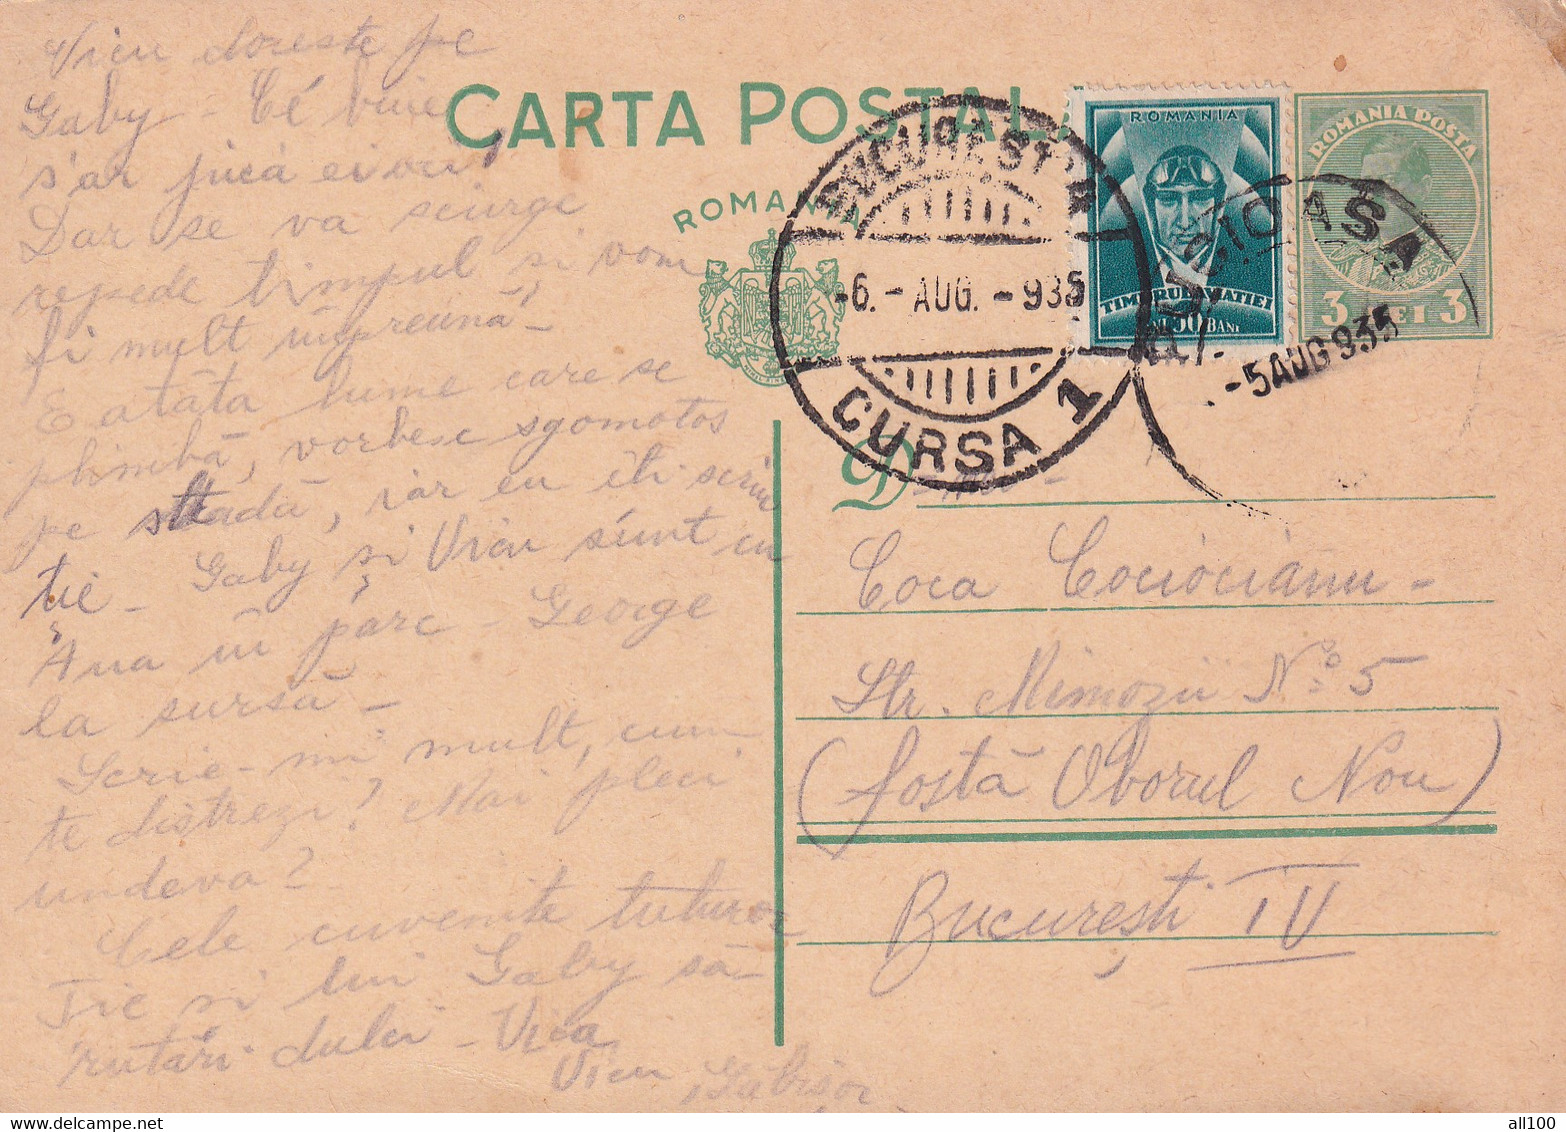 Vicu doreste pe
Gaby – Ce bine
s'ar juca ei
Dar se va scurge
repede timpul si vom
fi mult împreună –
E atâta lume care se
plimbă, vorbesc sgomotos
pe stradă, iar eu îti scriu
ție – Gaby și Vicu sunt cu
Ana în parc – George
la sursă –
Scrie-mi mult, cum
te distrezi? Mai pleci
undeva?
Cele cuvenite tuturor
Tie si lui Gaby să-
rutări dulci – Vica
Vicu
CARTA POSTALĂ
ROMANIA
BUCUREȘTI
-6.- AUG. -935
CURSA 1
ROMANIA
TIMBRUL AVIATIEI
50 BANI
ROMANIA POSTA
3 LEI 3
PUCIOASA
-5 AUG 935
D
Coca Cociocianu –
Str. Mimozii No. 5
(fostă Oborul Nou)
București IV
all100